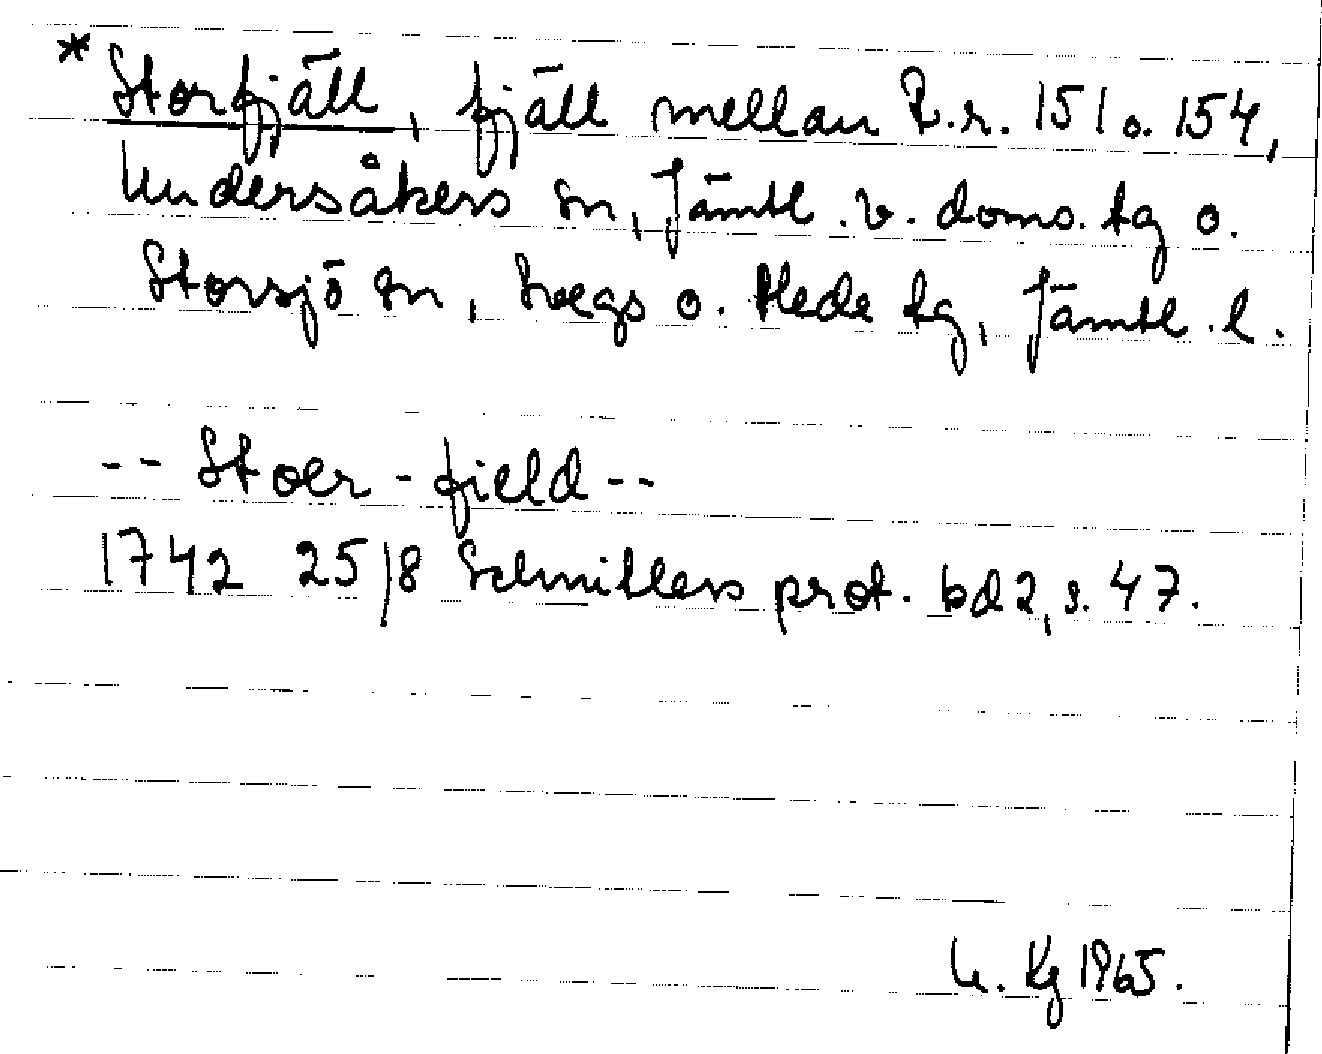 * Storfjäll, fjäll mellan R.r. 151 o. 154,
Undersåkers sn, Jämtl. v. doms. tg o.
Storsjö sn, Svegs o. Hede tg, Jämtl. l.
-- Stoer-field --
1742 25/8 Schnitlers prot. bd 2, s. 47.
U. Kg 1965.